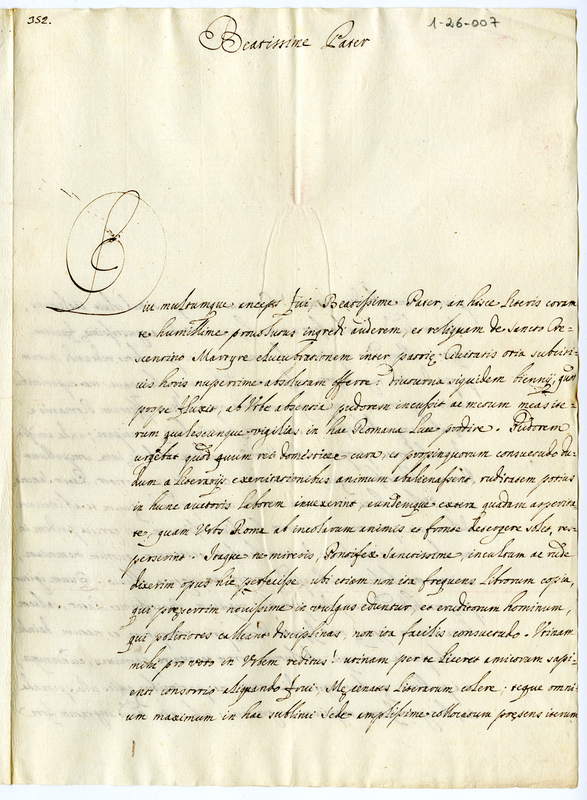 352.
1-26-007
Beatissime Pater
Diu multumque anceps fui, Beatissime Pater, an hisce literis coram
te humillime provolutus ingredi auderem, et reliquam de Sancto Cre-
scentino Martyre elucubrationem inter patrię Civitatis otia subcisi-
uis horis nuperrime absolutam offerre: diuturna siquidem biennij, quod
prope fluxit, ab Urbe absentia pudorem incussit ac metum meas ite-
rum qualescunque vigilias in hac Romana Luce prodire. Pudorem
urgebat quod quum rei domesticae cura, et propinquorum consuetudo du-
dum a literarijs exercitationibus animum abalienassent, ruditatem potius
in hunc auctoris laborem invexerint, eundemque extera quadam asperita-
te, quam Urbs Roma ab incolarum animis et fronte detergere solet, res-
perserint. Itaque ne mireris, Pontifex Sanctissime, incultum ac rude
dixerim opus hic perfecisse, ubi etiam non ita frequens librorum copia,
qui praesertim novissime in vulgus eduntur, et eruditorum hominum,
qui politiores callent disciplinas, non ita facilis consuetudo. Utinam
mihi pro voto in Urbem reditus! utinam per te liceret amicorum sapi-
enti consortio aliquando frui, Męcenates literarum colere, teque omni-
um maximum in hac sublimi Sede amplissime collocatum pręsens iterum